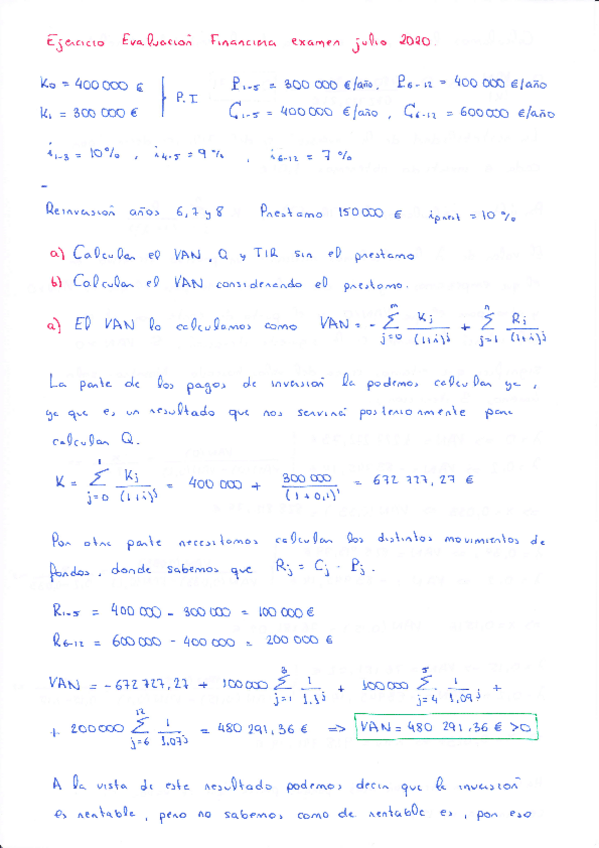 Ejercicio Evaluación Financiera examen julio 2020.
K₀ = 400 000 € P₁₋₅ = 300 000 €/año, P₆₋₁₂ = 400 000 €/año
K₁ = 300 000 € P.I C₁₋₅ = 400 000 €/año, C₆₋₁₂ = 600 000 €/año
i₁₋₃ = 10%, i₄₋₅ = 9%, i₆₋₁₂ = 7%
-
Reinversión años 6, 7 y 8 Prestamo 150 000 € iprest = 10%
a) Calcular el VAN, Q y TIR sin el prestamo
b) Calcular el VAN considerando el prestamo.
a) El VAN lo calculamos como VAN = - Σ_{j=0}^{m} Kj/(1+i)^j + Σ_{j=1}^{n} Rj/(1+i)^j
La parte de los pagos de inversión la podemos calcular ya,
ya que es un resultado que nos servirá posteriormente para
calcular Q.
K = Σ_{j=0}^{1} Kj/(1+i)^j = 400 000 + 300 000/(1+0,1)^1 = 672 727,27 €
Por otra parte necesitamos calcular los distintos movimientos de
fondos, donde sabemos que Rj = Cj - Pj.
R₁₋₅ = 400 000 - 300 000 = 100 000 €
R₆₋₁₂ = 600 000 - 400 000 = 200 000 €
VAN = -672 727,27 + 100 000 Σ_{j=1}^{3} 1/1.1^j + 100 000 Σ_{j=4}^{5} 1/1.09^j +
+ 200 000 Σ_{j=6}^{12} 1/1.07^j = 480 291,36 € => VAN = 480 291,36 € > 0
A la vista de este resultado podemos decir que la inversión
es rentable, pero no sabemos como de rentable es, por eso